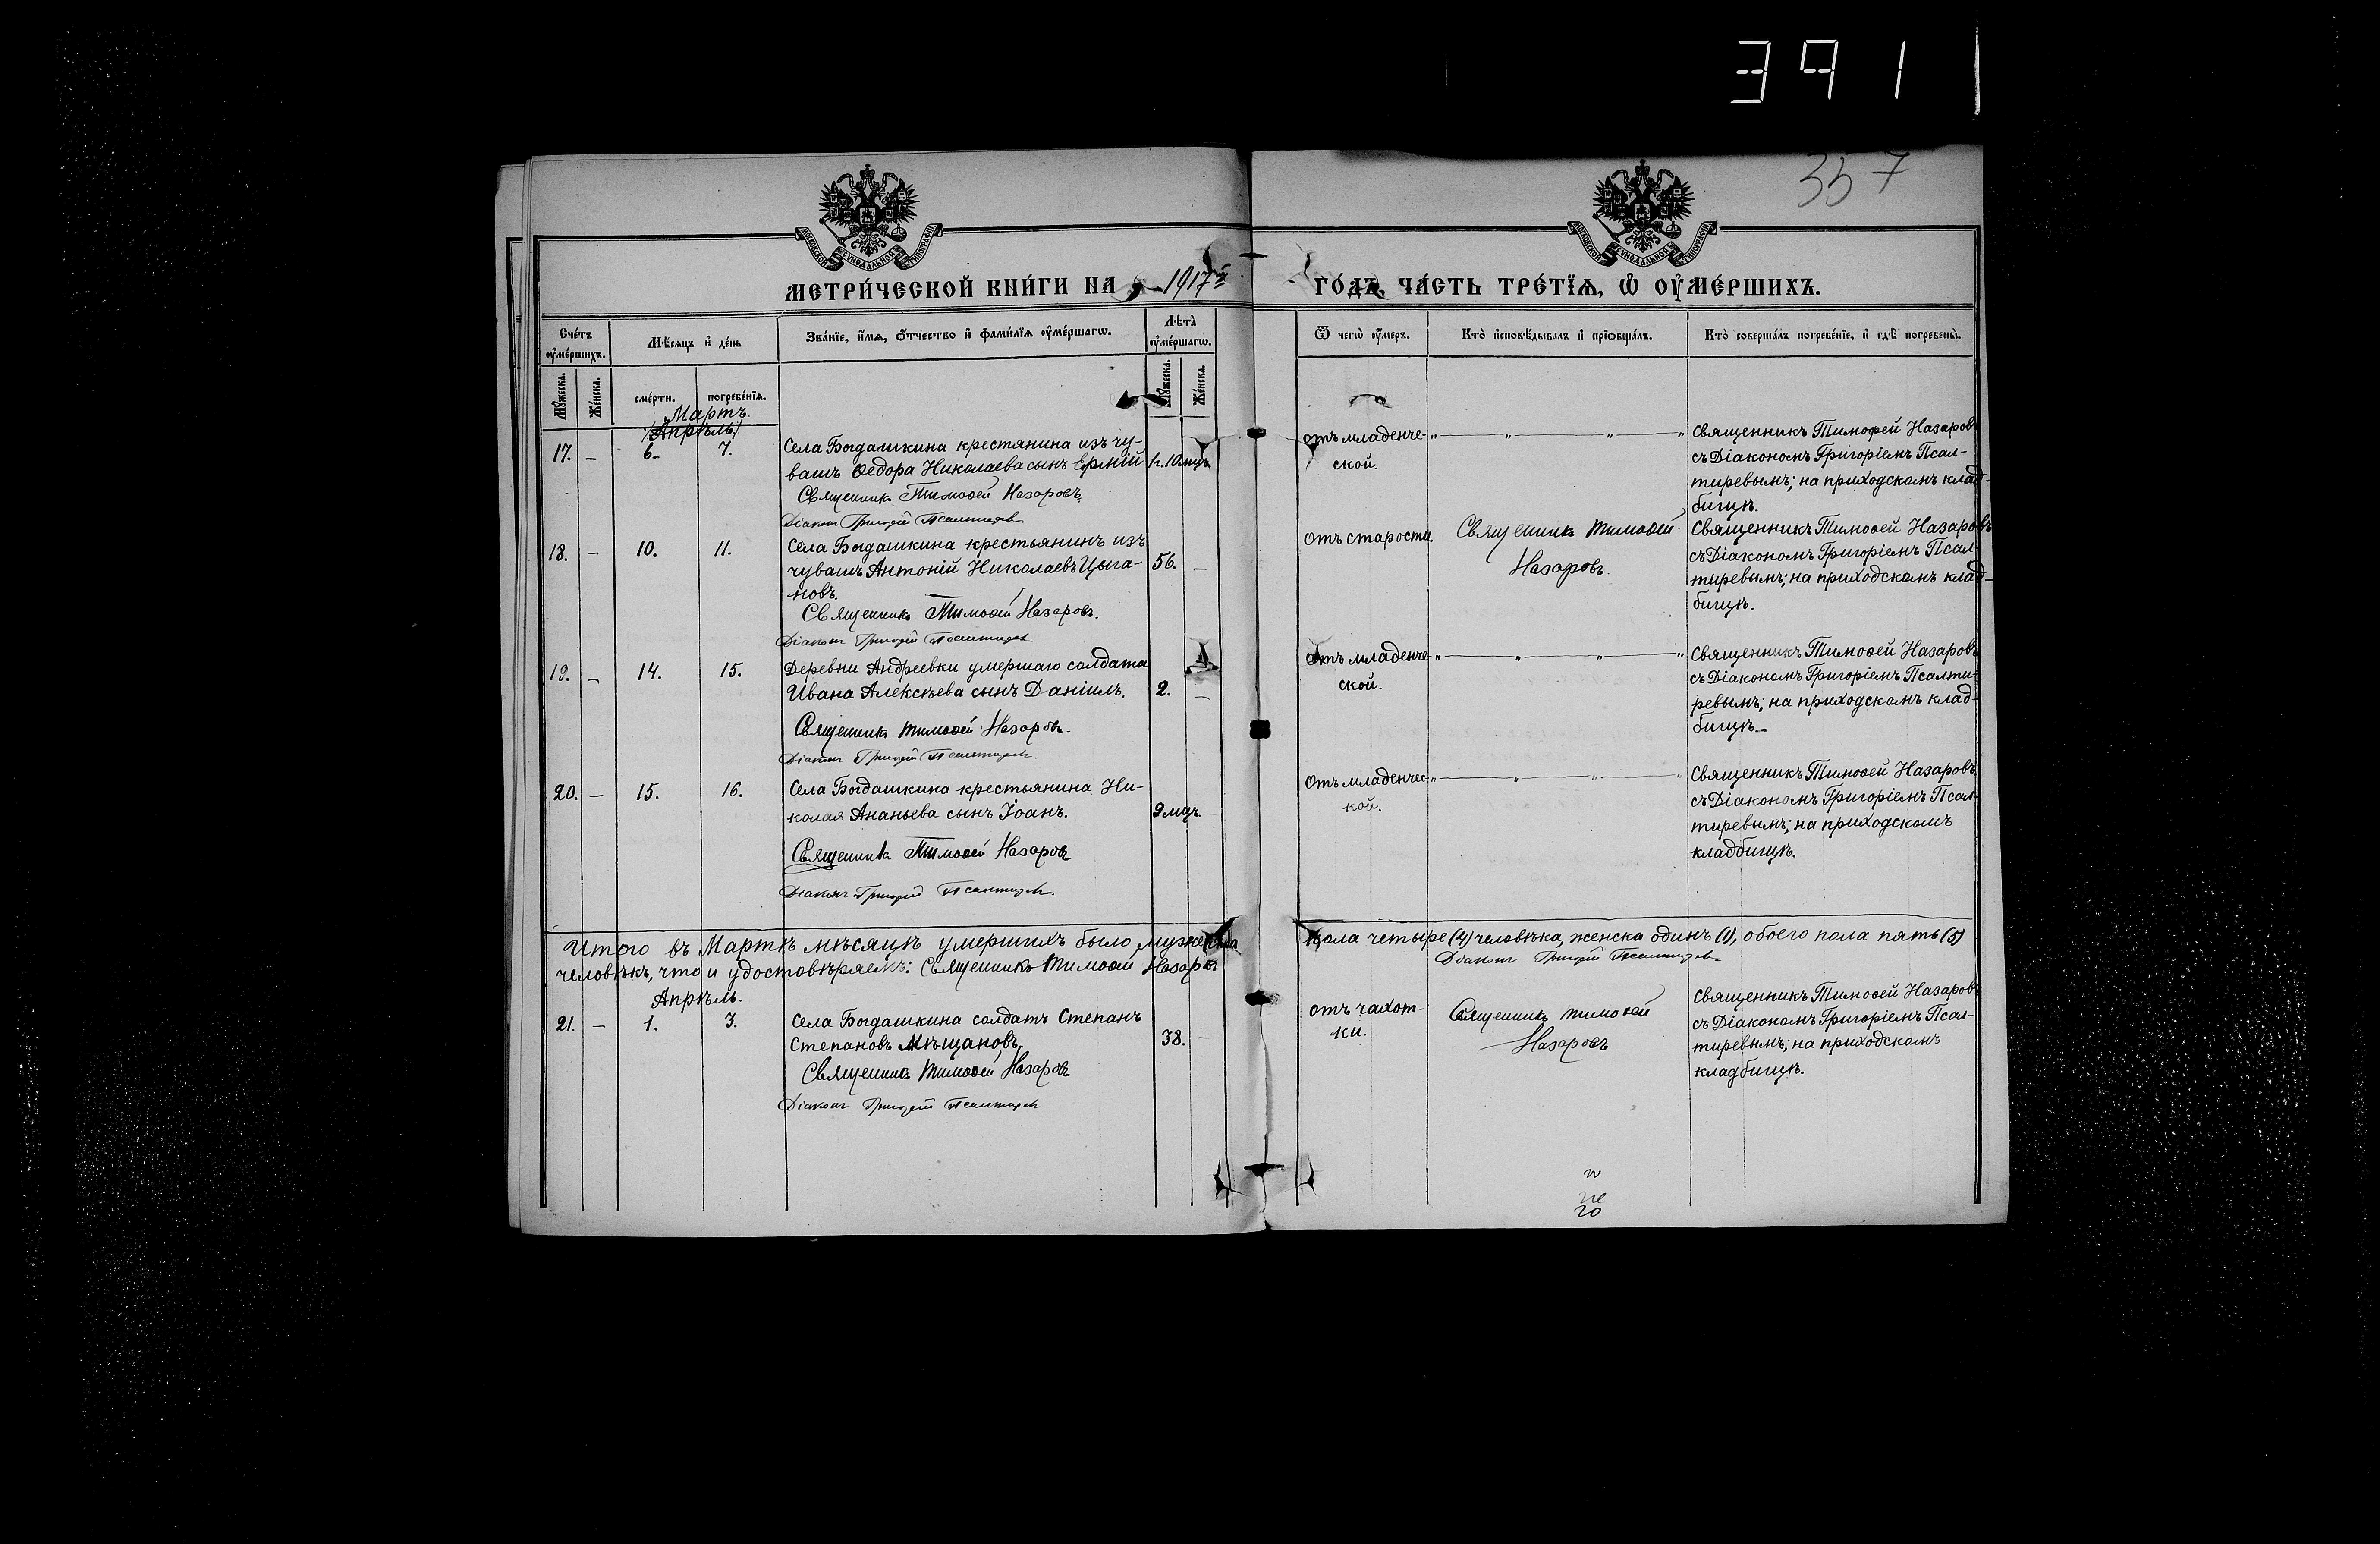 391
357
МОСКОВСКОЙ СѴНОДАЛЬНОЙ ТИПОГРАФІИ
МОСКОВСКОЙ СѴНОДАЛЬНОЙ ТИПОГРАФІИ
МЕТРИ́ЧЕСКОЙ КНИ́ГИ НА 1917 й ГО́ДЪ, ЧА́СТЬ ТРЕ́ТЇѦ, Ѡ҆ ОУ҆МЕ́РШИХЪ.
Сче́тъ оу҆ме́ршихъ.
Мѣ́сяцъ и҆ де́нь
Зва́нїе, и҆́мѧ, ѻ҆́тчество и҆ фами́лїѧ оу҆ме́ршагѡ.
Лѣ́та оу҆ме́ршагѡ.
Ѿ чегѡ̀ оу҆́меръ.
Кто̀ и҆сповѣ́дывалъ и҆ прїѻбща́лъ.
Кто̀ соверша́лъ погребе́нїе, и҆ гдѣ̀ погребены̀.
Мꙋ́жеска.
Же́нска.
сме́рти.
погребе́нїѧ.
Мꙋ́жеска.
Же́нска.
Мартъ.
(Апрѣль)
17. — 6. 7.
Села Богдашкина крестянина изъ чу-
вашъ Ѳедора Николаева сынъ Ермій 1 г. 10 мцъ
Священникъ Тимоѳей Назаровъ.
Діаконъ Григорій Псалтиревъ
отъ младенче- „ — „ — „ — „
ской.
Священникъ Тимофей Назаровъ
съ Діакономъ Григоріемъ Псал-
тиревымъ; на приходскомъ клад-
бищѣ.
18. — 10. 11.
Села Богдашкина крестьянинъ изъ
чувашъ Антоній Николаевъ Цыга- 56. —
новъ.
Священникъ Тимоѳей Назаровъ.
Діаконъ Григорій Псалтиревъ
отъ старости.
Священникъ Тимоѳей
Назаровъ.
Священникъ Тимоѳей Назаровъ
съ Діакономъ Григоріемъ Псал-
тиревымъ; на приходскомъ клад-
бищѣ.
19. — 14. 15.
Деревни Андреевки умершаго солдата
Ивана Алексѣева сынъ Даніилъ. 2. —
Священникъ Тимоѳей Назаровъ.
Діаконъ Григорій Псалтиревъ.
Отъ младенче- „ — „ — „ — „
ской.
Священникъ Тимоѳей Назаровъ
съ Діакономъ Григоріемъ Псалти-
ревымъ; на приходскомъ клад-
бищѣ. —
20. — 15. 16.
Села Богдашкина крестьянина Ни-
колая Ананьева сынъ Іоанъ. 9 мцъ.
Священникъ Тимоѳей Назаровъ
Діаконъ Григорій Псалтиревъ.
Отъ младенчес- „ — „ — „ — „
кой.
Священникъ Тимоѳей Назаровъ
съ Діакономъ Григоріемъ Псал-
тиревымъ; на приходскомъ
кладбищѣ.
Итого въ Мартѣ мѣсяцѣ умершихъ было мужеска пола четыре (4) человѣка, женска одинъ (1), обоего пола пять (5)
человѣкъ, что и удостовѣряемъ: Священникъ Тимоѳей Назаровъ Діаконъ Григорій Псалтиревъ
Апрѣль.
21. — 1. 3.
Села Богдашкина солдатъ Степанъ
Степановъ Мѣщановъ. 38. —
Священникъ Тимоѳей Назаровъ
Діаконъ Григорій Псалтиревъ
отъ чахот-
ки.
Священникъ Тимоѳей
Назаровъ
Священникъ Тимоѳей Назаровъ
съ Діакономъ Григоріемъ Псал-
тиревымъ; на приходскомъ
кладбищѣ.